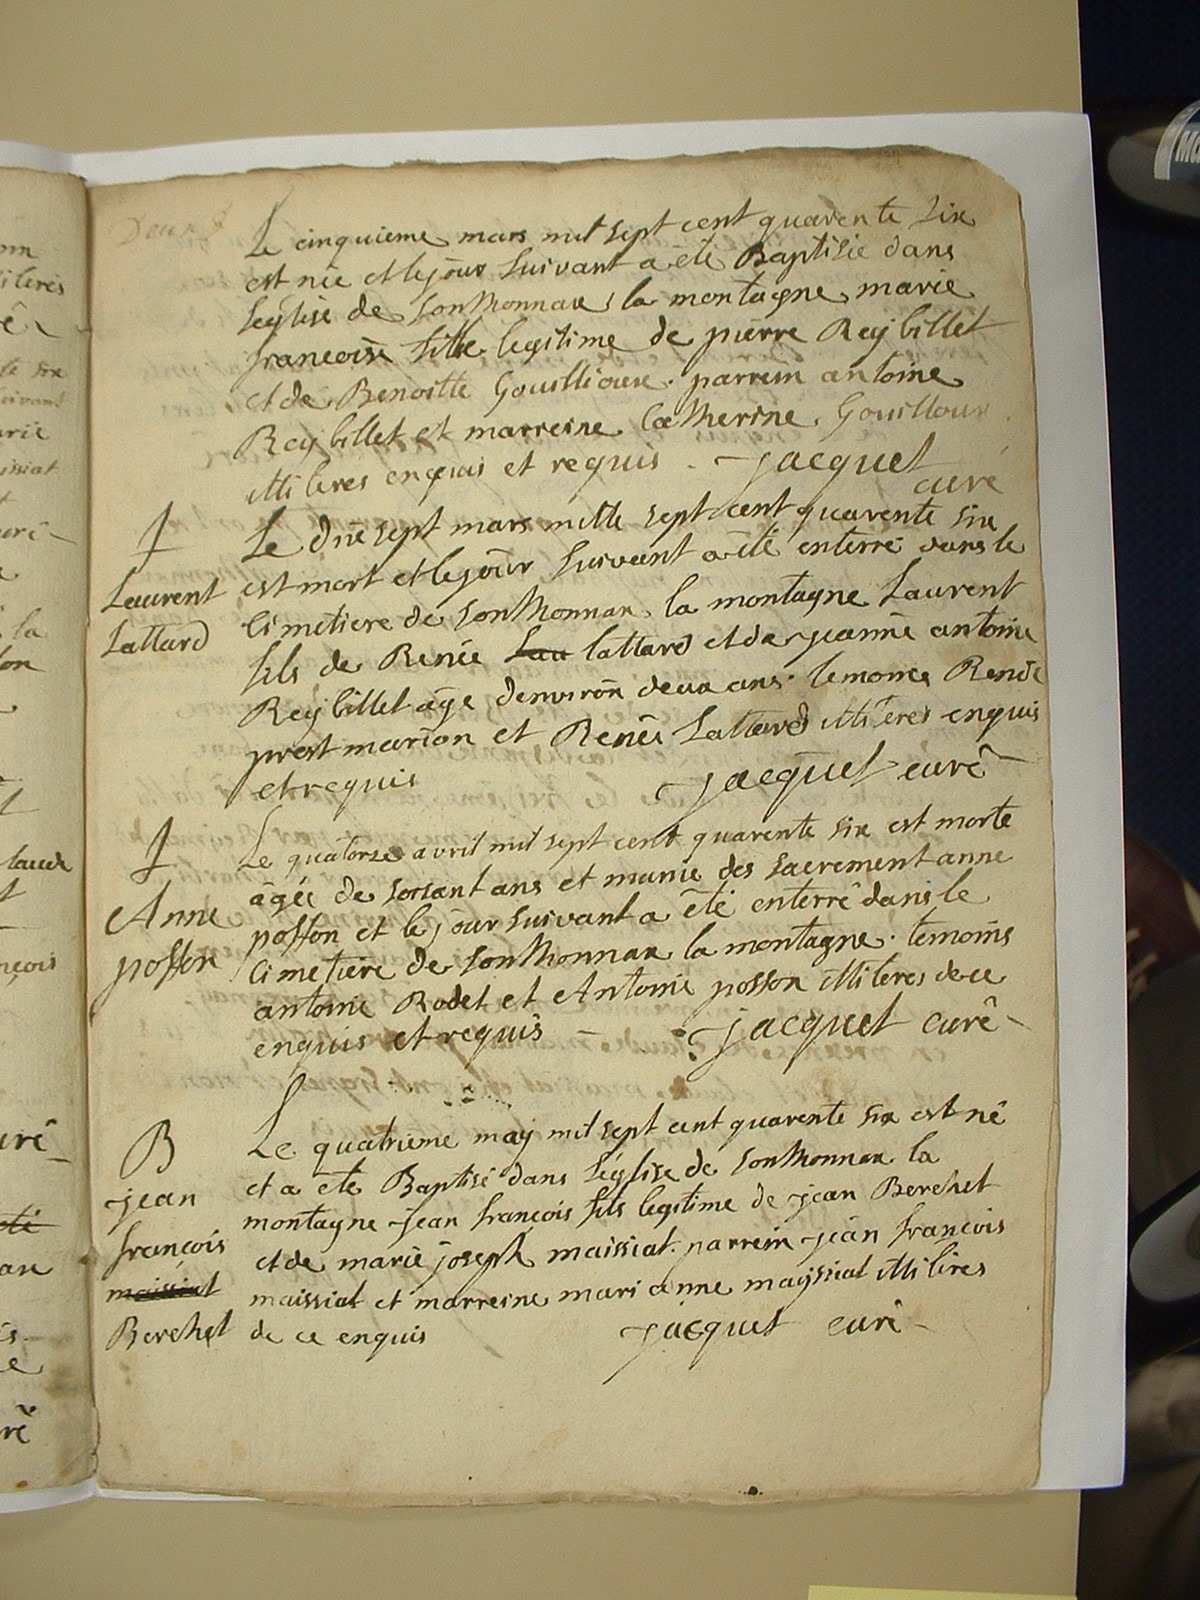 Le cinquieme mars mil sept cent quarente six
est née et le jour suivant a été Baptisée dans
leglise de sonthonnax la montagne marie
francoise fille legitime de pierre Reybillet
et de Benoitte Gouillioux. parrein antoine
Reybillet et marreine Catherine Gouilloux
illiteres enquis et requis. jacquet
curé
Laurent
Lattard
Le dixsept mars mille sept cent quarente six
est mort et le jour suivant a été enterré dans le
Cimetiere de sonthonnax la montagne Laurent
fils de Renée Lau lattard et de jeanne antoine
Reybillet age denviron deux ans. temoins
prost marion et Renée Lattard illiteres enquis
et requis jacquet curé
Anne
posson
Le quatorse avril mil sept cent quarente six est morte
agée de soisant ans et munie des sacrement anne
posson et le jour suivant a été enterré dans le
Cimetiere de sonthonnax la montagne. temoins
antoine Rodet et Antoine posson illiteres de ce
enquis et requis - jacquet curé
B
jean
françois
maissiat
Berchet
Le quatrieme may mil sept cent quarente six est né
et a eté Baptisé dans l'église de sonthonnax la
montagne jean françois fils legitime de jean Berchet
et de marie joseph maissiat. parrein jean françois
maissiat et marreine mari anne mayssiat illiteres
de ce enquis jacquet curé